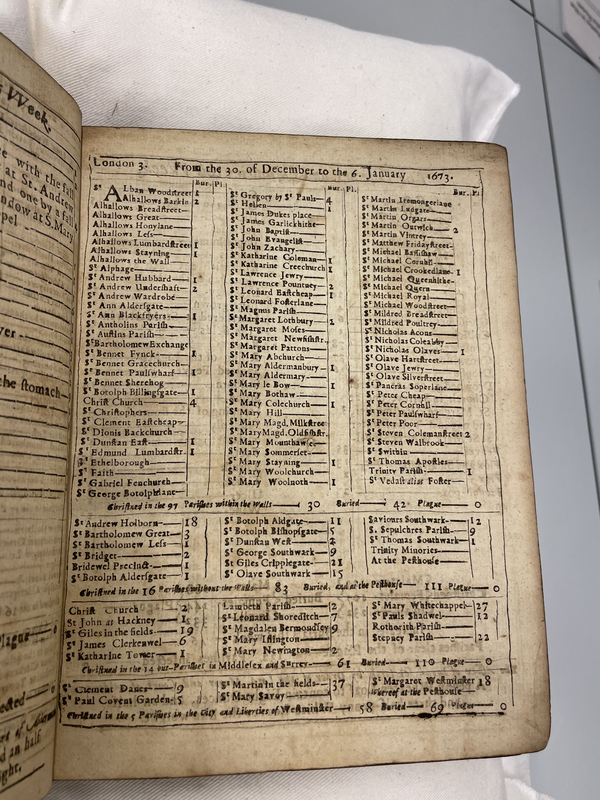 Week.
London 3. From the 30. of December to the 6. January 1673.
Bur. Pl.
St Alban Woodstreet 1
Alhallows Barkin 2
Alhallows Breadstreet
Alhallows Great
Alhallows Honylane
Alhallows Less
Alhallows Lumbardstreet 1
Alhallows Stayning 1
Alhallows the Wall
St Alphage
St Andrew Hubbard 1
St Andrew Undershaft 2
St Andrew Wardrobe
St Ann Aldersgate
St Ann Blackfryers 1
St Antholins Parish
St Austins Parish
St Bartholomew Exchange
St Bennet Fynck 1
St Bennet Gracechurch
St Bennet Paulswharf 1
St Bennet Sherehog
St Botolph Billingsgate 1
Christ Church 4
St Christophers
St Clement Eastcheap
St Dionis Backchurch
St Dunstan East 1
St Edmund Lumbardstr. 1
St Ethelborough
St Faith
St Gabriel Fenchurch
St George Botolphlane
Bur. Pl.
St Gregory by St Pauls 4
St Hellen 1
St James Dukes place
St James Garlickhithe
St John Baptist
St John Evangelist
St John Zachary
St Katharine Coleman 1
St Katharine Creechurch 1
St Lawrence Jewry
St Lawrence Pountney 2
St Leonard Eastcheap 1
St Leonard Fosterlane
St Magnus Parish
St Margaret Lothbury 2
St Margaret Moses
St Margaret Newfishstr.
St Margaret Pattons
St Mary Abchurch
St Mary Aldermanbury 1
St Mary Aldermary
St Mary le Bow 1
St Mary Bothaw
St Mary Colechurch
St Mary Hill
St Mary Magd. Milkstree
St Mary Magd. Oldfishstr.
St Mary Mounthaw
St Mary Sommerset
St Mary Stayning 1
St Mary Woolchurch
St Mary Woolnoth 1
Bur. Pl.
St Martin Iremongerlane
St Martin Ludgate
St Martin Orgars
St Martin Outwich 2
St Martin Vintrey
St Matthew Fridaystreet
St Michael Bassishaw
St Michael Cornhil
St Michael Crookedlane 1
St Michael Queenhithe
St Michael Quern
St Michael Royal
St Michael Woodstreet
St Mildred Breadstreet
St Mildred Poultrey
St Nicholas Acons
St Nicholas Coleabby
St Nicholas Olaves 1
St Olave Hartstreet
St Olave Jewry
St Olave Silverstreet
St Pancras Soperlane
St Peter Cheap
St Peter Cornhil
St Peter Paulswharf
St Peter Poor
St Steven Colemanstreet 2
St Steven Walbrook
St Swithin
St Thomas Apostles
Trinity Parish 1
St Vedast alias Foster
Christned in the 97 Parishes within the Walls 30 Buried 42 Plague 0
St Andrew Holborn 18
St Bartholomew Great 3
St Bartholomew Less 1
St Bridget 2
Bridewel Precinct 1
St Botolph Aldersgate 1
St Botolph Aldgate 11
St Botolph Bishopsgate 5
St Dunstan West 2
St George Southwark 9
St Giles Cripplegate 21
St Olave Southwark 15
Saviours Southwark 12
S. Sepulchres Parish 9
St Thomas Southwark 1
Trinity Minories
At the Pesthouse
Christned in the 16 Parishes without the Walls 83 Buried, and at the Pesthouse 111 Plague 0
Christ Church 2
St John at Hackney 1
St Giles in the fields 19
St James Clerkenwel 6
St Katharine Tower 1
Lambeth Parish 2
St Leonard Shoreditch 7
St Magdalen Bermondsey 9
St Mary Islington
St Mary Newington 2
St Mary Whitechappel 27
St Pauls Shadwel 12
Rothorith Parish
Stepney Parish 22
Christned in the 14 out-Parishes in Middlesex and Surrey 61 Buried 110 Plague 0
St Clement Danes 9
St Paul Covent Garden 5
St Martin in the fields 37
St Mary Savoy
St Margaret Westminster 18
Whereof at the Pesthouse
Christned in the 5 Parishes in the City and Liberties of Westminster 58 Buried 69 Plague 0